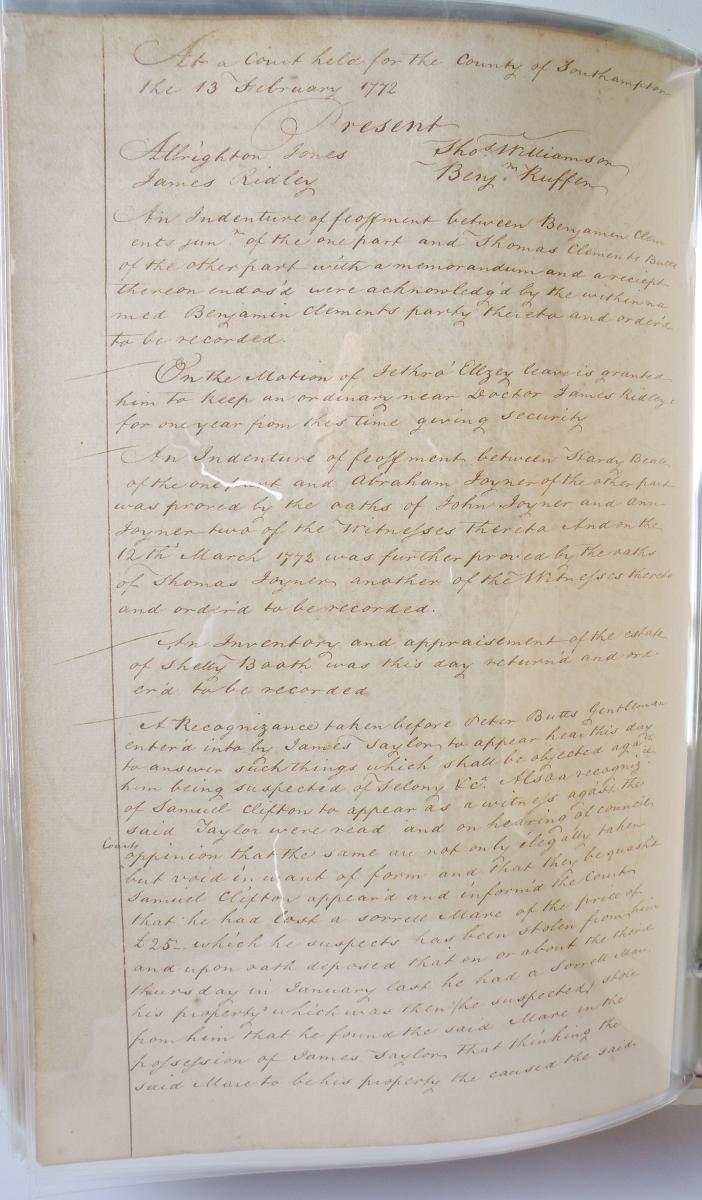 At a Court held for the County of Southampton
the 13 February 1772
Present
Albrighton Jones Thos Williamson
James Ridley Benjn Ruffin
An Indenture of feoffment between Benjamin Clem
ents junr of the one part and Thomas Clements Butts
of the other part with a memorandum and a reciept
thereon endos'd were acknowledg'd by the within na
med Benjamin Clements party thereto and order'd
to be recorded.
On the Motion of Jethro Ellzey leave is granted
him to keep an ordinary near Doctor James Ridleys
for one year from this time giving security
An Indenture of feoffment between Hardy Beale
of the one part and Abraham Joyner of the other part
was proved by the oaths of John Joyner and Ann
Joyner two of the Witnesses thereto And on the
12th March 1772 was further proved by the oaths
of Thomas Joyner another of the Witnesses thereto
and order'd to be recorded.
An Inventory and appraisement of the estate
of Shelly Booth was this day return'd and ord
er'd to be recorded
A Recognizance taken before Peter Butts Gentleman
enter'd into by James Taylor to appear hear this day
to answer such things which shall be objected agat
him being suspected of Felony &ca. Also a recogniz:ce
of Samuel Clifton to appear as a witness against the
said Taylor were read and on hearing of council
Courts
oppinion that the same are not only ilegally taken
but void in want of form and that they be quash'd
Samuel Clifton appear'd and inform'd the Court
that he had lost a sorrell Mare of the price of
£25– which he suspects has been stolen from him
and upon oath deposed that on or about the third
thursday in January last he had a sorrell Mare
his property which was then (he suspected) stole
from him that he found the said Mare in the
possession of James Taylor that thinking the
said Mare to be his property the caused the said